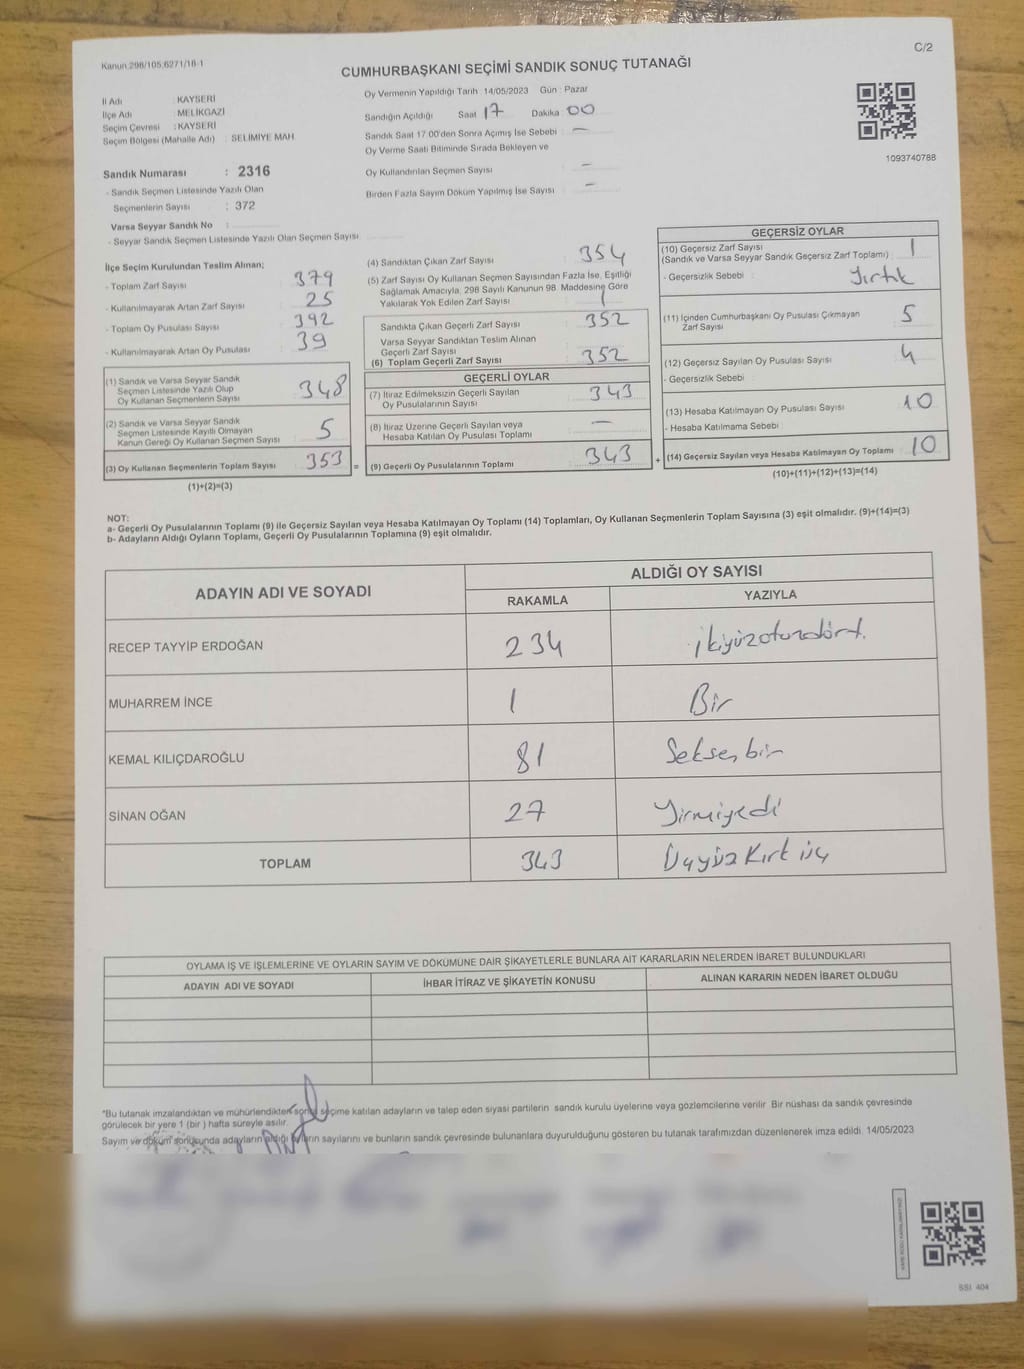 Kanun:298/105,6271/18-1
C/2
CUMHURBAŞKANI SEÇİMİ SANDIK SONUÇ TUTANAĞI
İl Adı : KAYSERİ
İlçe Adı : MELİKGAZİ
Seçim Çevresi : KAYSERİ
Seçim Bölgesi (Mahalle Adı) : SELİMİYE MAH
Oy Vermenin Yapıldığı Tarih : 14/05/2023 Gün : Pazar
Sandığın Açıldığı Saat 17 Dakika 00
Sandık Saat 17:00'den Sonra Açımış İse Sebebi : —
Oy Verme Saati Bitiminde Sırada Bekleyen ve
Oy Kullandırılan Seçmen Sayısı : —
Birden Fazla Sayım Döküm Yapılmış İse Sayısı : —
1093740788
Sandık Numarası : 2316
- Sandık Seçmen Listesinde Yazılı Olan
Seçmenlerin Sayısı : 372
Varsa Seyyar Sandık No :
- Seyyar Sandık Seçmen Listesinde Yazılı Olan Seçmen Sayısı
İlçe Seçim Kurulundan Teslim Alınan;
- Toplam Zarf Sayısı 379
- Kullanılmayarak Artan Zarf Sayısı 25
- Toplam Oy Pusulası Sayısı 392
- Kullanılmayarak Artan Oy Pusulası 39
(1) Sandık ve Varsa Seyyar Sandık
Seçmen Listesinde Yazılı Olup
Oy Kullanan Seçmenlerin Sayısı 348
(2) Sandık ve Varsa Seyyar Sandık
Seçmen Listesinde Kayıtlı Olmayan
Kanun Gereği Oy Kullanan Seçmen Sayısı 5
(3) Oy Kullanan Seçmenlerin Toplam Sayısı 353 =
(1)+(2)=(3)
(4) Sandıktan Çıkan Zarf Sayısı : 354
(5) Zarf Sayısı Oy Kullanan Seçmen Sayısından Fazla İse, Eşitliği
Sağlamak Amacıyla, 298 Sayılı Kanunun 98. Maddesine Göre
Yakılarak Yok Edilen Zarf Sayısı : 1
Sandıkta Çıkan Geçerli Zarf Sayısı : 352
Varsa Seyyar Sandıktan Teslim Alınan
Geçerli Zarf Sayısı :
(6) Toplam Geçerli Zarf Sayısı : 352
GEÇERLİ OYLAR
(7) İtiraz Edilmeksizin Geçerli Sayılan
Oy Pusulalarının Sayısı : 343
(8) İtiraz Üzerine Geçerli Sayılan veya
Hesaba Katılan Oy Pusulası Toplamı : —
(9) Geçerli Oy Pusulalarının Toplamı : 343 +
GEÇERSİZ OYLAR
(10) Geçersiz Zarf Sayısı
(Sandık ve Varsa Seyyar Sandık Geçersiz Zarf Toplamı) : 1
- Geçersizlik Sebebi : Yırtık
(11) İçinden Cumhurbaşkanı Oy Pusulası Çıkmayan
Zarf Sayısı : 5
(12) Geçersiz Sayılan Oy Pusulası Sayısı : 4
- Geçersizlik Sebebi :
(13) Hesaba Katılmayan Oy Pusulası Sayısı : 10
- Hesaba Katılmama Sebebi :
(14) Geçersiz Sayılan veya Hesaba Katılmayan Oy Toplamı : 10
(10)+(11)+(12)+(13)=(14)
NOT:
a- Geçerli Oy Pusulalarının Toplamı (9) ile Geçersiz Sayılan veya Hesaba Katılmayan Oy Toplamı (14) Toplamları, Oy Kullanan Seçmenlerin Toplam Sayısına (3) eşit olmalıdır. (9)+(14)=(3)
b- Adayların Aldığı Oyların Toplamı, Geçerli Oy Pusulalarının Toplamına (9) eşit olmalıdır.
ADAYIN ADI VE SOYADI ALDIĞI OY SAYISI
RAKAMLA YAZIYLA
RECEP TAYYİP ERDOĞAN 234 ikiyüzotuzdört.
MUHARREM İNCE 1 Bir
KEMAL KILIÇDAROĞLU 81 Seksen bir
SİNAN OĞAN 27 Yirmiyedi
TOPLAM 343 Üçyüz Kırk üç
OYLAMA İŞ VE İŞLEMLERİNE VE OYLARIN SAYIM VE DÖKÜMÜNE DAİR ŞİKAYETLERLE BUNLARA AİT KARARLARIN NELERDEN İBARET BULUNDUKLARI
ADAYIN ADI VE SOYADI İHBAR İTİRAZ VE ŞİKAYETİN KONUSU ALINAN KARARIN NEDEN İBARET OLDUĞU
*Bu tutanak imzalandıktan ve mühürlendikten sonra seçime katılan adayların ve talep eden siyasi partilerin sandık kurulu üyelerine veya gözlemcilerine verilir. Bir nüshası da sandık çevresinde
görülecek bir yere 1 (bir) hafta süreyle asılır.
Sayım ve döküm sonucunda adayların aldığı oyların sayılarını ve bunların sandık çevresinde bulunanlara duyurulduğunu gösteren bu tutanak tarafımızdan düzenlenerek imza edildi. 14/05/2023
SSI: 404